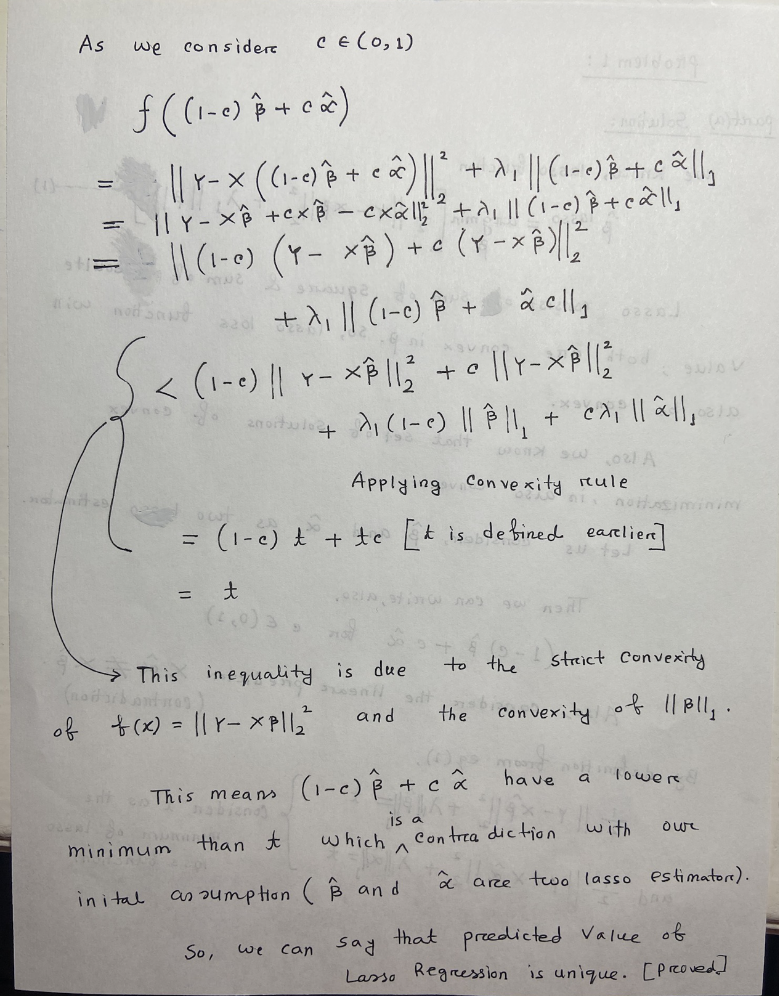 As we consider c ∈ (0,1)
f((1-c) β̂ + c α̂)
= ||Y-X((1-c)β̂ + c α̂)||₂² + λ₁ ||(1-c)β̂ + c α̂||₁
= ||Y-Xβ̂ + cxβ̂ - cxα̂||₂² + λ₁ ||(1-c)β̂ + cα̂||₁
= ||(1-c) (Y- xβ̂) + c (Y-xβ̂)||₂²
+ λ₁ ||(1-c) β̂ + α̂ c||₁
< (1-c) || Y- xβ̂||₂² + c ||Y-Xβ̂||₂²
+ λ₁(1-c) ||β̂||₁ + cλ₁ ||α̂||₁
Applying convexity rule
= (1-c) t + tc [t is defined earlier]
= t
→ This inequality is due to the strict convexity
of f(x) = ||Y- Xβ||₂² and the convexity of ||β||₁.
This means (1-c) β̂ + c α̂ have a lower
minimum than t which is a contradiction with our
inital assumption (β̂ and α̂ are two lasso estimator).
So, we can say that predicted value of
Lasso Regression is unique. [Proved]